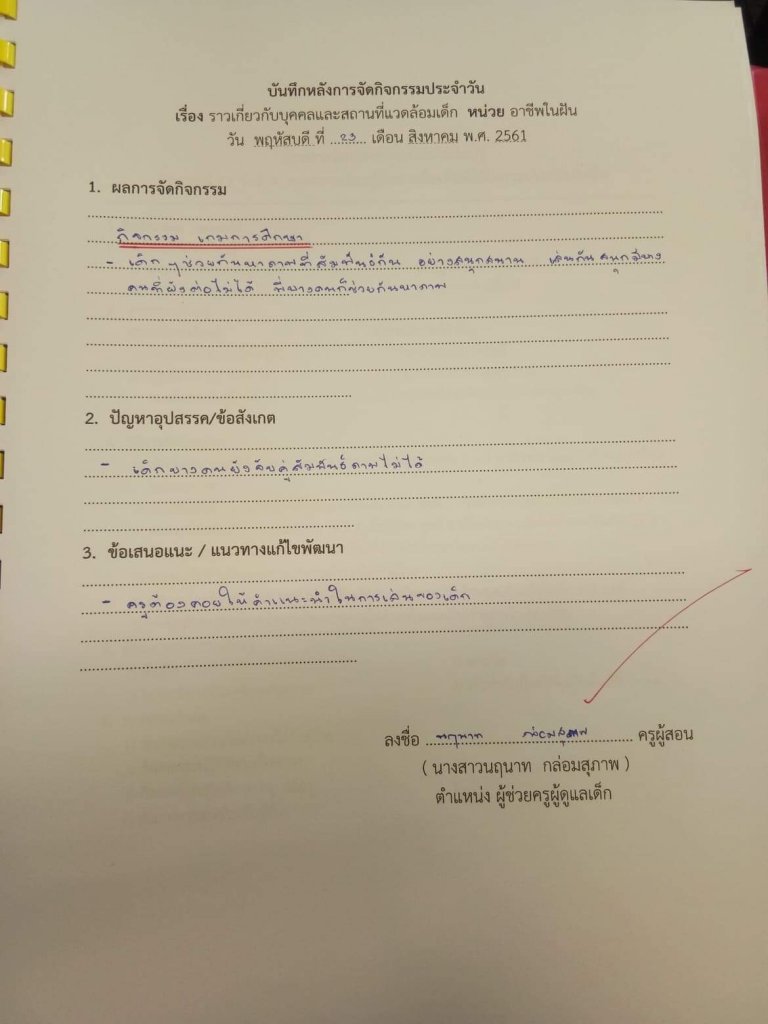 บันทึกหลังการจัดกิจกรรมประจำวัน
เรื่อง ราวเกี่ยวกับบุคคลและสถานที่แวดล้อมเด็ก หน่วย อาชีพในฝัน
วัน พฤหัสบดี ที่ ...23... เดือน สิงหาคม พ.ศ. 2561
1. ผลการจัดกิจกรรม
กิจกรรม เกมการศึกษา
- เด็ก ๆ ช่วยกันหาภาพที่สัมพันธ์กัน อย่างสนุกสนาน เล่นกันสนุกมีบาง
คนที่ยังต่อไม่ได้ มีบางคนก็ช่วยกันหาภาพ
2. ปัญหาอุปสรรค/ข้อสังเกต
- เด็กบางคนยังจับคู่สัมพันธ์ภาพไม่ได้
3. ข้อเสนอแนะ / แนวทางแก้ไขพัฒนา
- ครูต้องคอยให้คำแนะนำในการเล่นของเด็ก
ลงชื่อ นฤนาท กล่อมสุภาพ ครูผู้สอน
( นางสาวนฤนาท กล่อมสุภาพ )
ตำแหน่ง ผู้ช่วยครูผู้ดูแลเด็ก